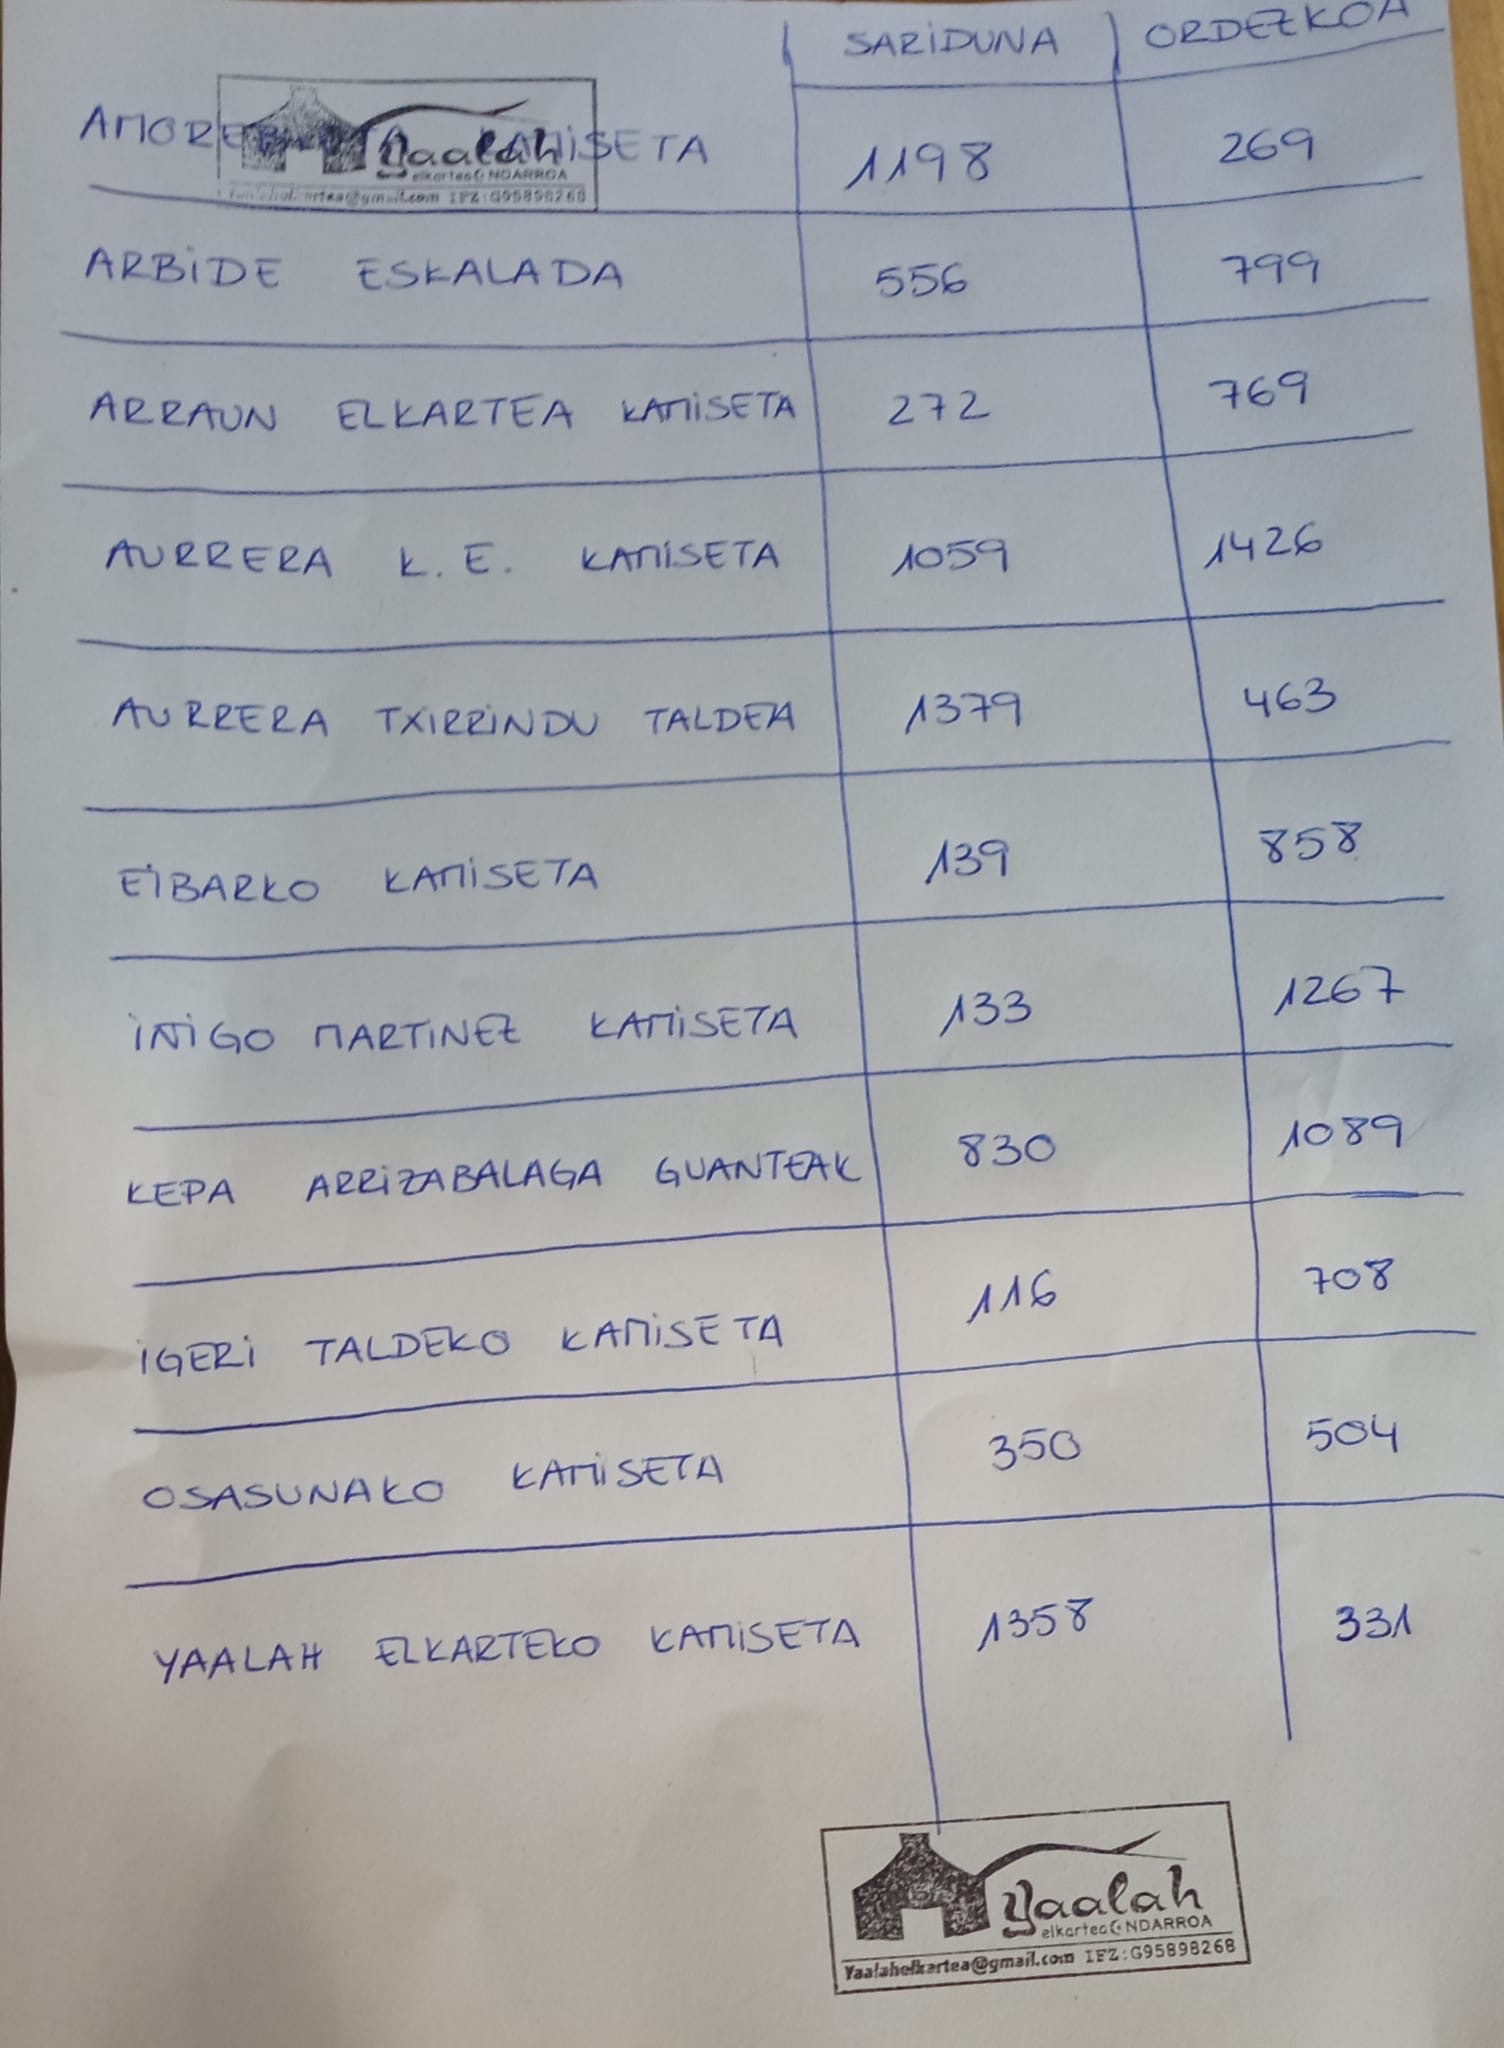 SARIDUNA ORDEZKOA
AMOREBIETA KAMISETA 1198 269
Yaalah
elkartea ONDARROA
Yaalahelkartea@gmail.com IFZ:G95898268
ARBIDE ESKALADA 556 799
ARRAUN ELKARTEA KAMISETA 272 769
AURRERA K.E. KAMISETA 1059 1426
AURRERA TXIRRINDU TALDEA 1379 463
EIBARKO KAMISETA 139 858
IÑIGO MARTINEZ KAMISETA 133 1267
KEPA ARRIZABALAGA GUANTEAK 830 1089
IGERI TALDEKO KAMISETA 116 708
OSASUNAKO KAMISETA 350 504
YAALAH ELKARTEKO KAMISETA 1358 331
Yaalah
elkartea ONDARROA
Yaalahelkartea@gmail.com IFZ:G95898268